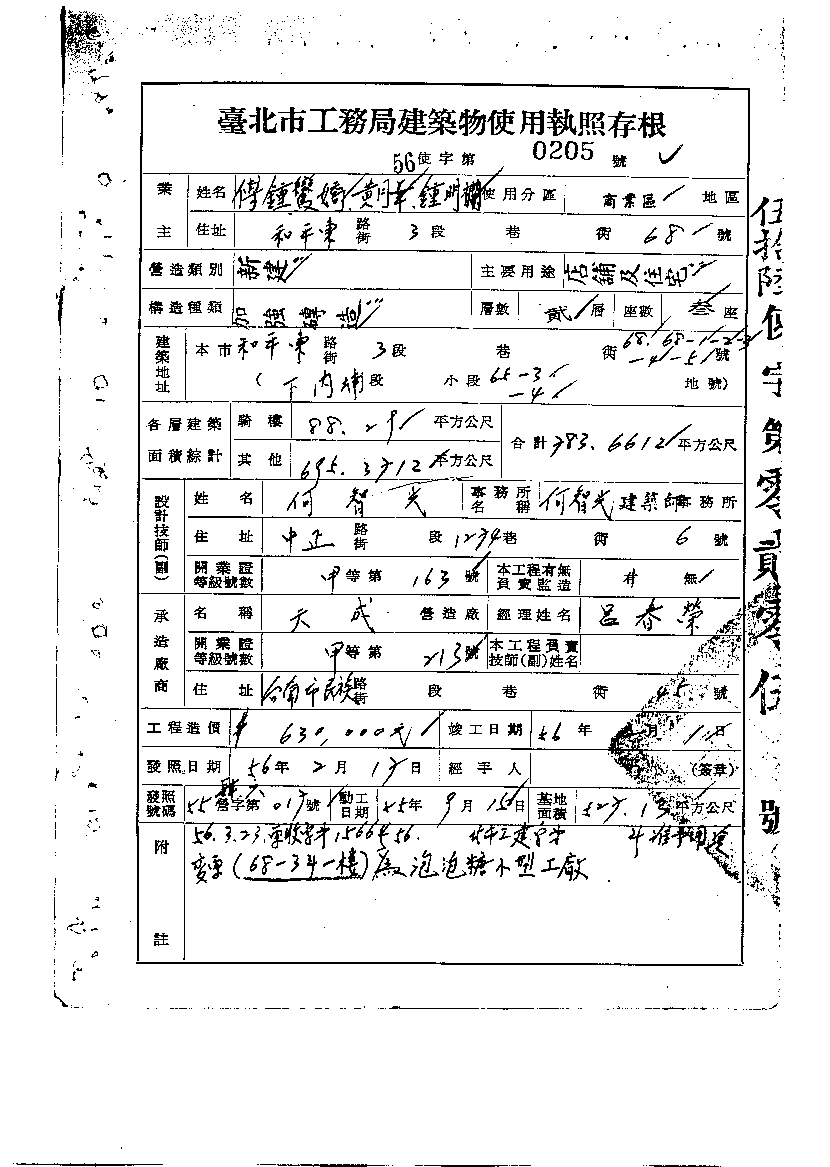 臺北市工務局建築物使用執照存根
56使字第 0205 號
業主 姓名 黃月華 鍾明 使用分區 商業區 地區
住址 和平東 路街 3段 巷 衖 68 號
營造類別 新建 主要用途 店舖及住宅
構造種類 加強磚造 層數 貳層 座數 叁座
建築地址 本市和平東 路街 3段 巷 衖 68. 68-1-2-3 -4-5 號
( 下內埔段 小段 65-3 -4 地號)
各層建築面積綜計 騎樓 88.29 平方公尺 合計 783.6612 平方公尺
其他 695.3712 平方公尺
設計技師(副) 姓名 何智光 事務所名稱 何智光建築師事務所
住址 中正 路街 段 1234巷 衖 6 號
開業證等級號數 甲等第 163 號 本工程有無負責監造 有 無
承造廠商 名稱 天成 營造廠 經理姓名 呂春榮
開業證等級號數 甲等第 213 號 本工程負責技師(副)姓名
住址 台南市民族 路街 段 巷 衖 45 號
工程造價 $ 630,000元 竣工日期 56年 月 1日
發照日期 56年 2月 17日 經手人 (簽章)
發照號碼 55營字第 017 號 動工日期 55年 9月 15日 基地面積 527.13 平方公尺
附註 56.3.23. 收字 15664 56.
變更(68-3號一樓)為泡泡糖小型工廠
伍拾陸使字第零貳零伍號